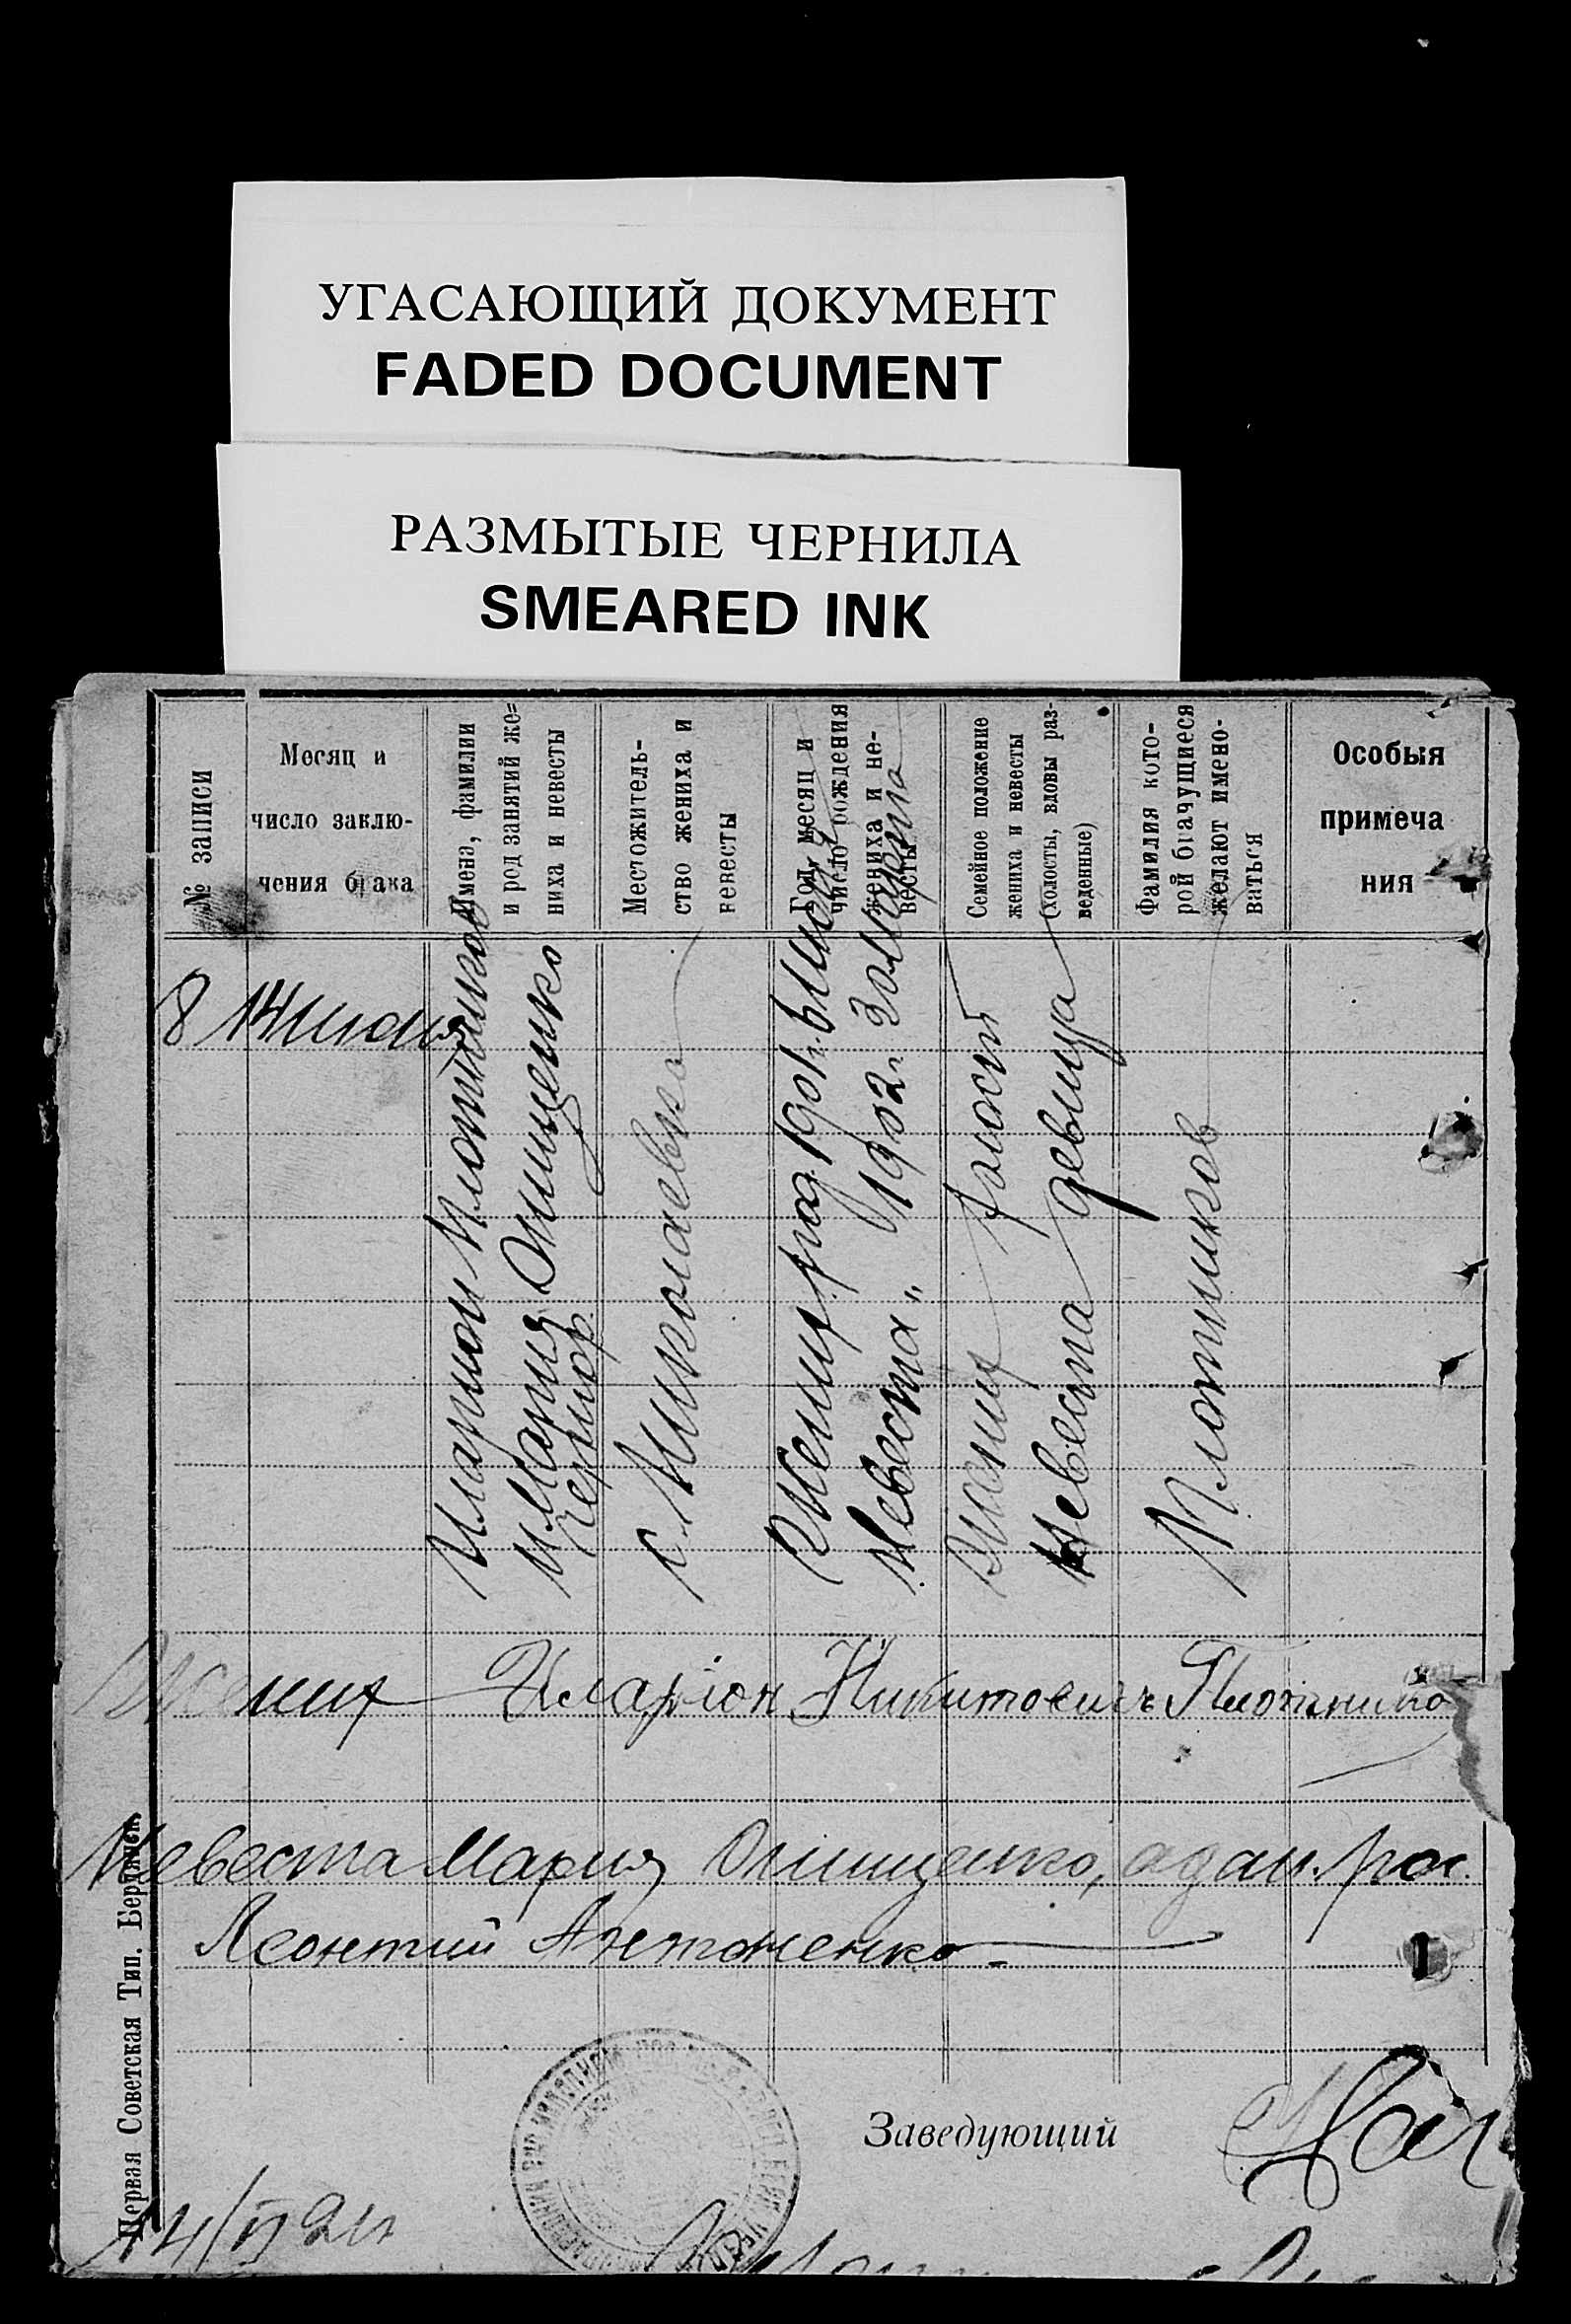 УГАСАЮЩИЙ ДОКУМЕНТ
FADED DOCUMENT
РАЗМЫТЫЕ ЧЕРНИЛА
SMEARED INK
№ записи
Месяц и
число заклю-
чения брака
Имена, фамилии
и род занятий же=
ниха и невесты
Местожитель-
ство жениха и
невесты
Год, месяц и
число рождения
жениха и не-
весты
Семейное положение
жениха и невесты
(холосты, вдовы раз-
веденные)
Фамилия кото-
рой брачущиеся
желают имено-
ваться
Особыя
примеча
ния
8
14 июня
Иларион Плотников
и Мария Онищенко
с. Николаевка
Жених род. 1901 г.
Невеста „ 1902 г. 30
Жених холост
Невеста девица
Плотников
Жених Иларіон Никитович Плотнико
Невеста Мария Онищенко, а за н. рос.
Леонтий Антоненко.
Заведующий
14/VI 21 г
Первая Советская Тип. Бердянск.